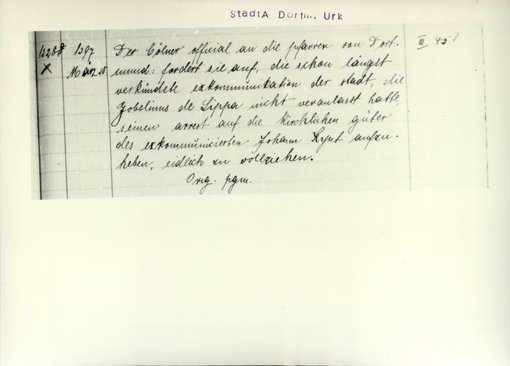 StadtA Dortm. Urk
1397
März 28.
X
Der Cölner official an die pfarren von Dort-
mund: fordert sie auf, die schon längst
verkündete exkommunikation der stadt, die
Gobelinus de Lippa nicht veranlasst hatte,
seinen arrest auf die kirchlichen güter
des exkommunicierten Johann Kynt aufzu-
heben, eidlich zu vollziehen.
Orig. pgm.
III 45